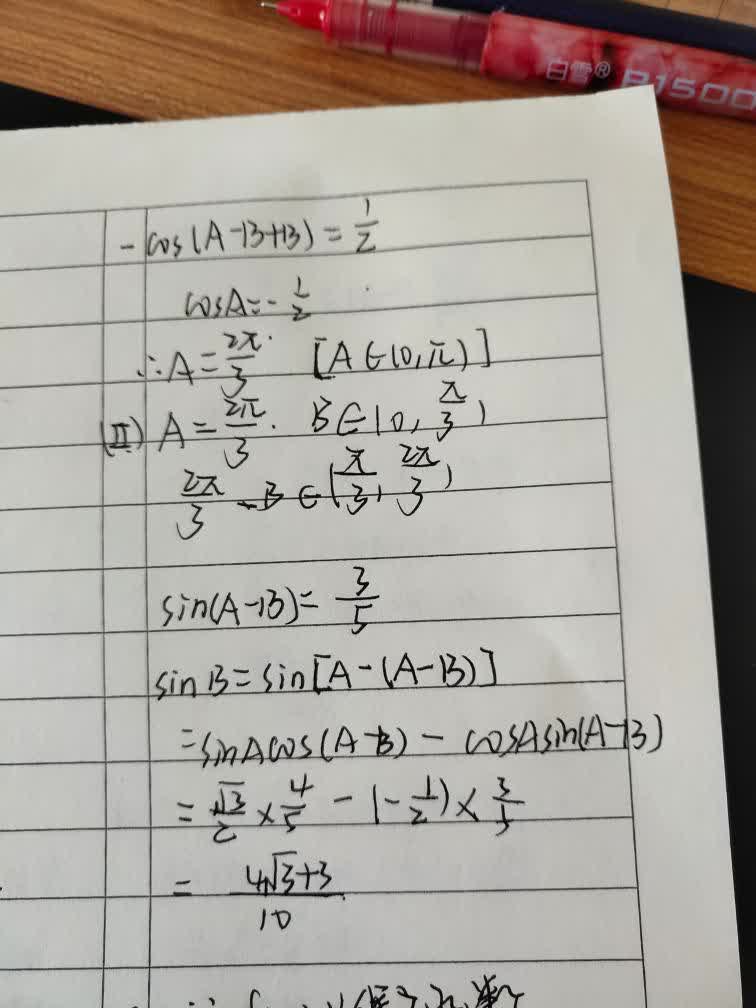 白雪® P1500
-cos(A-B+B)=1/2
cosA=-1/2
∴A=2π/3 [A∈(0,π)]
(Ⅱ) A=2π/3. B∈(0,π/3)
2π/3-B∈(π/3,2π/3)
sin(A-B)=3/5
sinB=sin[A-(A-B)]
=sinAcos(A-B)-cosAsin(A-B)
=√3/2×4/5-(-1/2)×3/5
=(4√3+3)/10